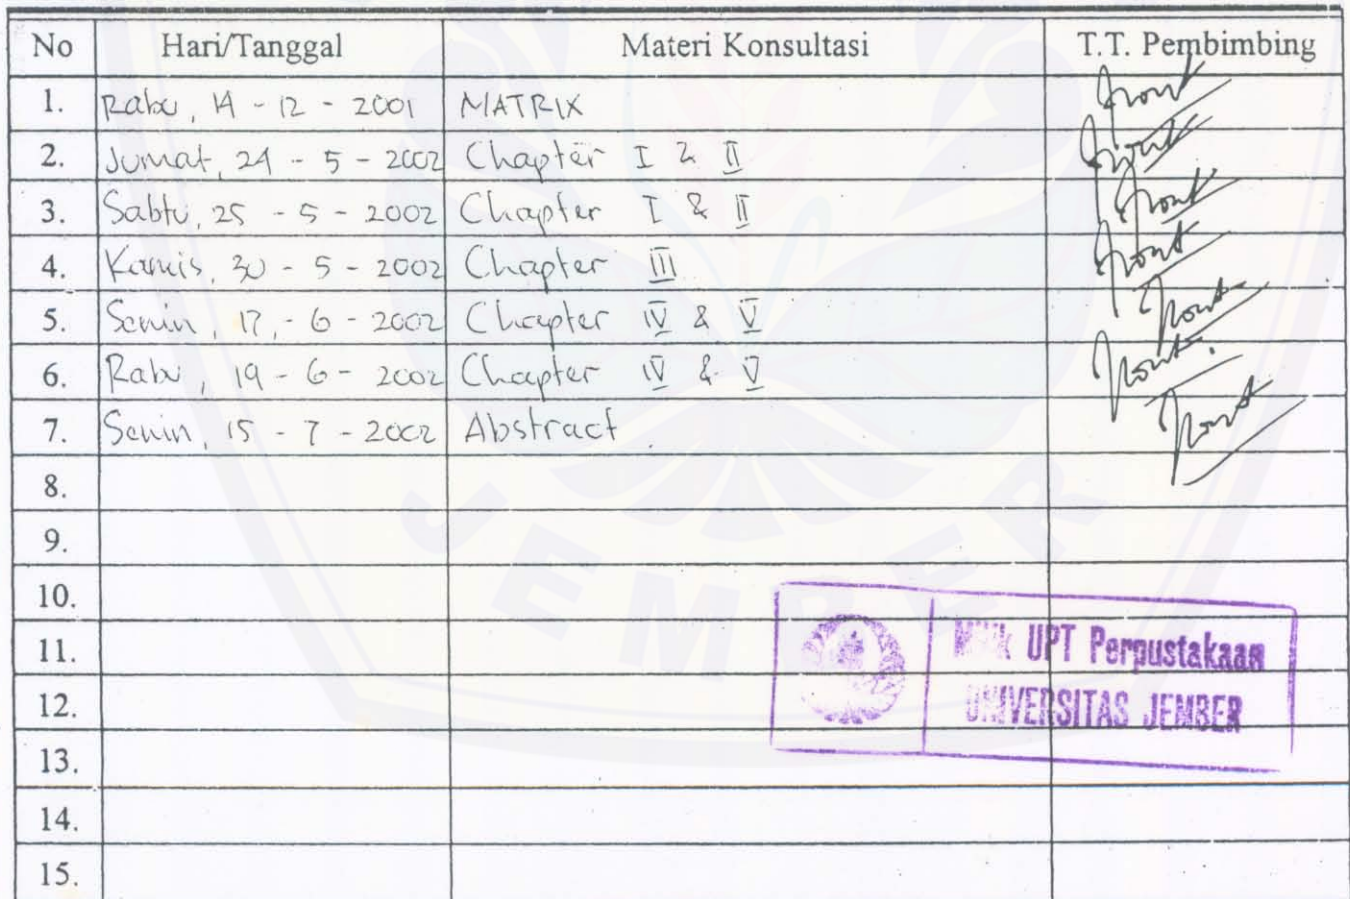 No Hari/Tanggal Materi Konsultasi T.T. Pembimbing
1. Rabu, 14 - 12 - 2001 MATRIX
2. Jumat, 24 - 5 - 2002 Chapter I & II
3. Sabtu, 25 - 5 - 2002 Chapter I & II
4. Kamis, 30 - 5 - 2002 Chapter III
5. Senin, 17 - 6 - 2002 Chapter IV & V
6. Rabu, 19 - 6 - 2002 Chapter IV & V
7. Senin, 15 - 7 - 2002 Abstract
8.
9.
JEMBER
10.
11.
12.
13.
14.
15.
Milik UPT Perpustakaan
UNIVERSITAS JEMBER